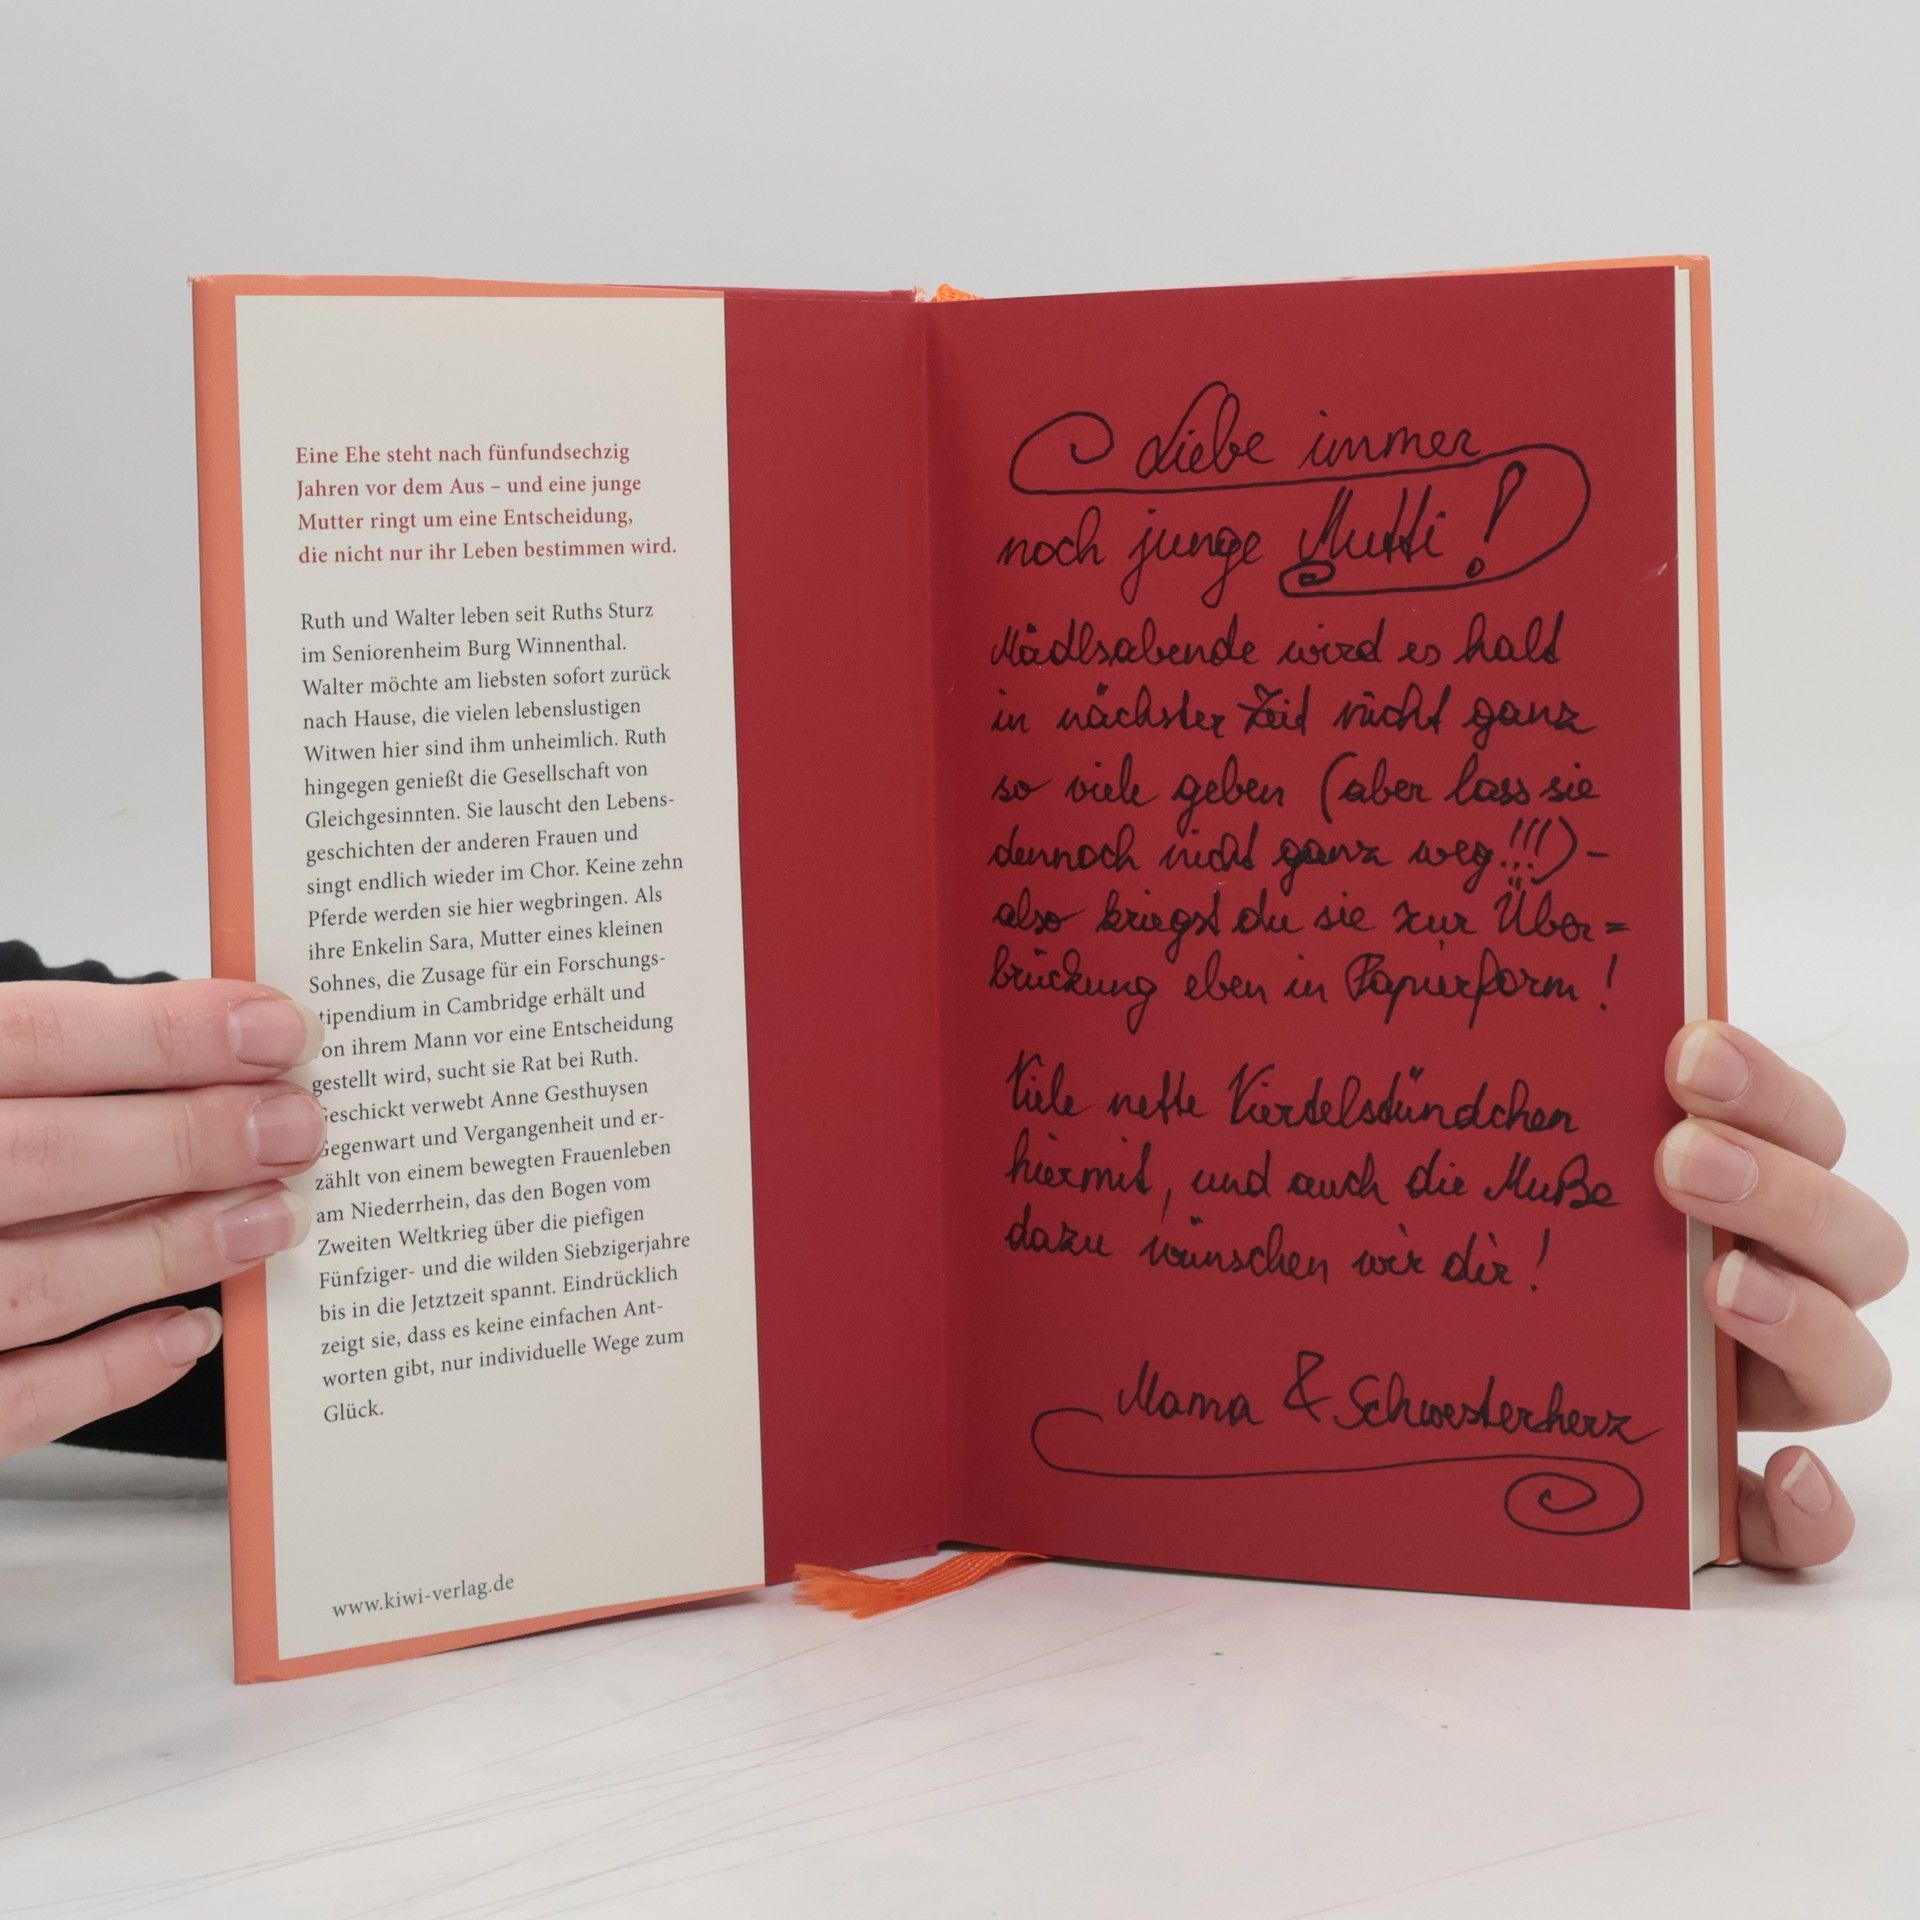 Eine Ehe steht nach fünfundsechzig
Jahren vor dem Aus – und eine junge
Mutter ringt um eine Entscheidung,
die nicht nur ihr Leben bestimmen wird.
Ruth und Walter leben seit Ruths Sturz
im Seniorenheim Burg Winnenthal.
Walter möchte am liebsten sofort zurück
nach Hause, die vielen lebenslustigen
Witwen hier sind ihm unheimlich. Ruth
hingegen genießt die Gesellschaft von
Gleichgesinnten. Sie lauscht den Lebens-
geschichten der anderen Frauen und
singt endlich wieder im Chor. Keine zehn
Pferde werden sie hier wegbringen. Als
ihre Enkelin Sara, Mutter eines kleinen
Sohnes, die Zusage für ein Forschungs-
stipendium in Cambridge erhält und
von ihrem Mann vor eine Entscheidung
gestellt wird, sucht sie Rat bei Ruth.
Geschickt verwebt Anne Gesthuysen
Gegenwart und Vergangenheit und er-
zählt von einem bewegten Frauenleben
am Niederrhein, das den Bogen vom
Zweiten Weltkrieg über die piefigen
Fünfziger- und die wilden Siebzigerjahre
bis in die Jetztzeit spannt. Eindrücklich
zeigt sie, dass es keine einfachen Ant-
worten gibt, nur individuelle Wege zum
Glück.
www.kiwi-verlag.de
Liebe immer
noch junge Mutti!
Mädlsabende wird es halt
in nächster Zeit nicht ganz
so viele geben (aber lass sie
dennoch nicht ganz weg!!!) -
also kriegst du sie zur Über=
brückung eben in Papierform!
Viele nette Viertelstündchen
hiermit, und auch die Muße
dazu wünschen wir dir!
Mama & Schwesterherz